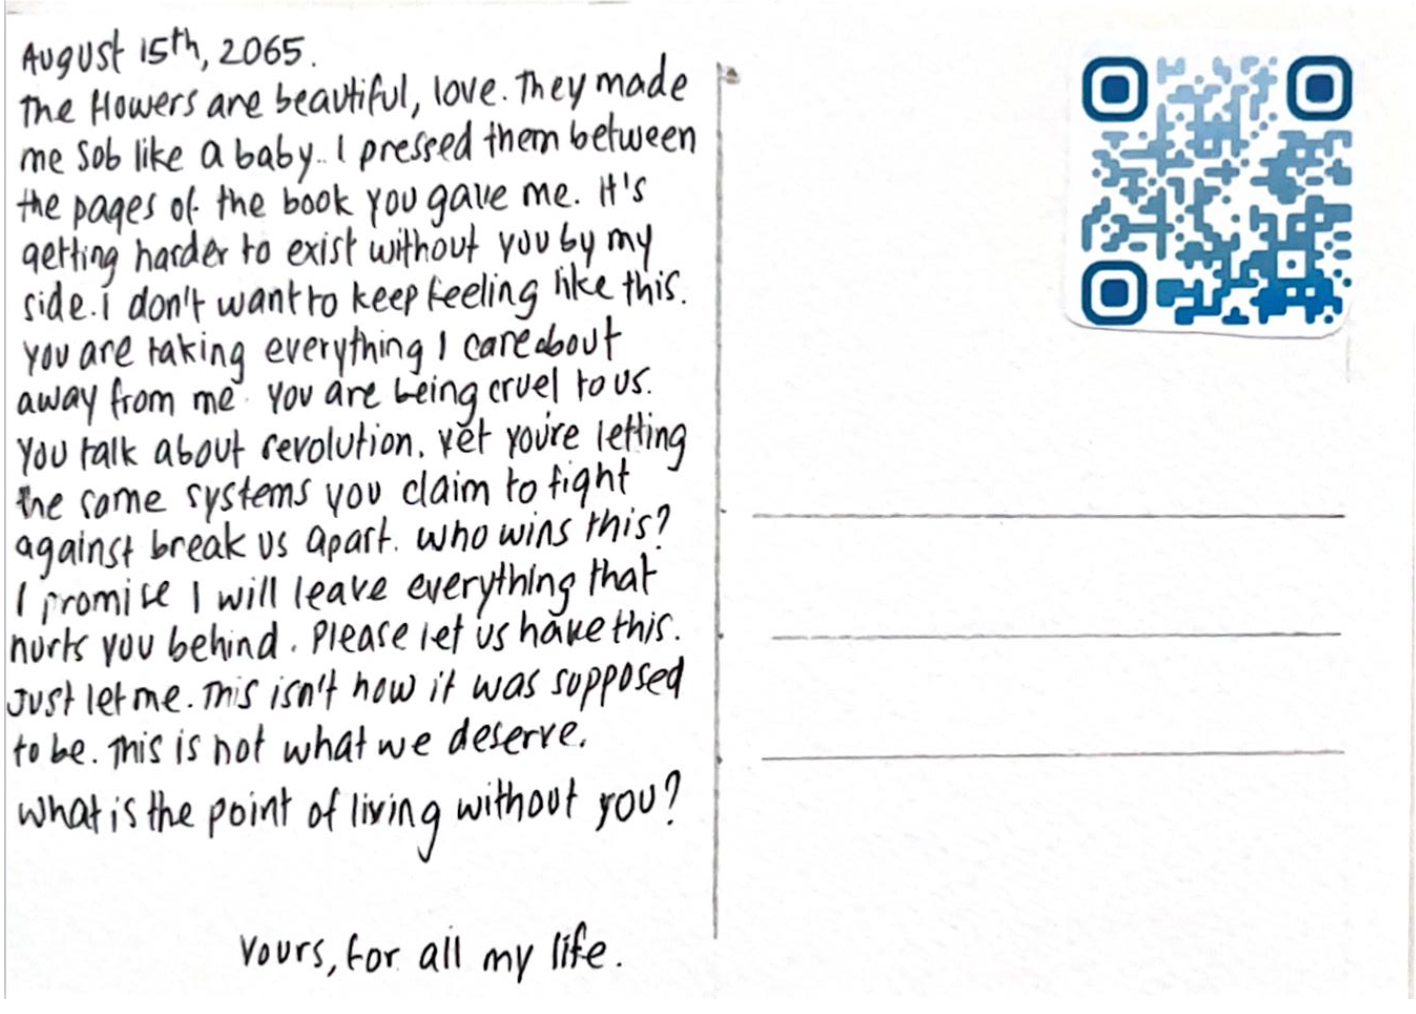 August 15th, 2065.
The flowers are beautiful, love. They made
me sob like a baby.. I pressed them between
the pages of the book you gave me. It's
getting harder to exist without you by my
side. I don't want to keep feeling like this.
You are taking everything I care about
away from me. You are being cruel to us.
You talk about revolution. Yet you're letting
the same systems you claim to fight
against break us apart. Who wins this?
I promise I will leave everything that
hurts you behind. Please let us have this.
Just let me. This isn't how it was supposed
to be. This is not what we deserve.
What is the point of living without you?
Yours, for all my life.